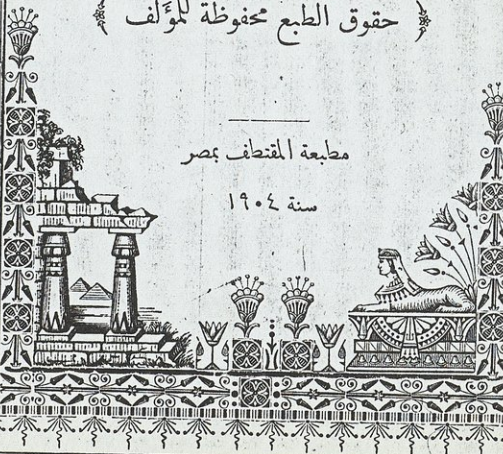 ﴿ حقوق الطبع محفوظة للمؤَلف ﴾
مطبعة المقتطف بمصر
سنة ١٩٠٤